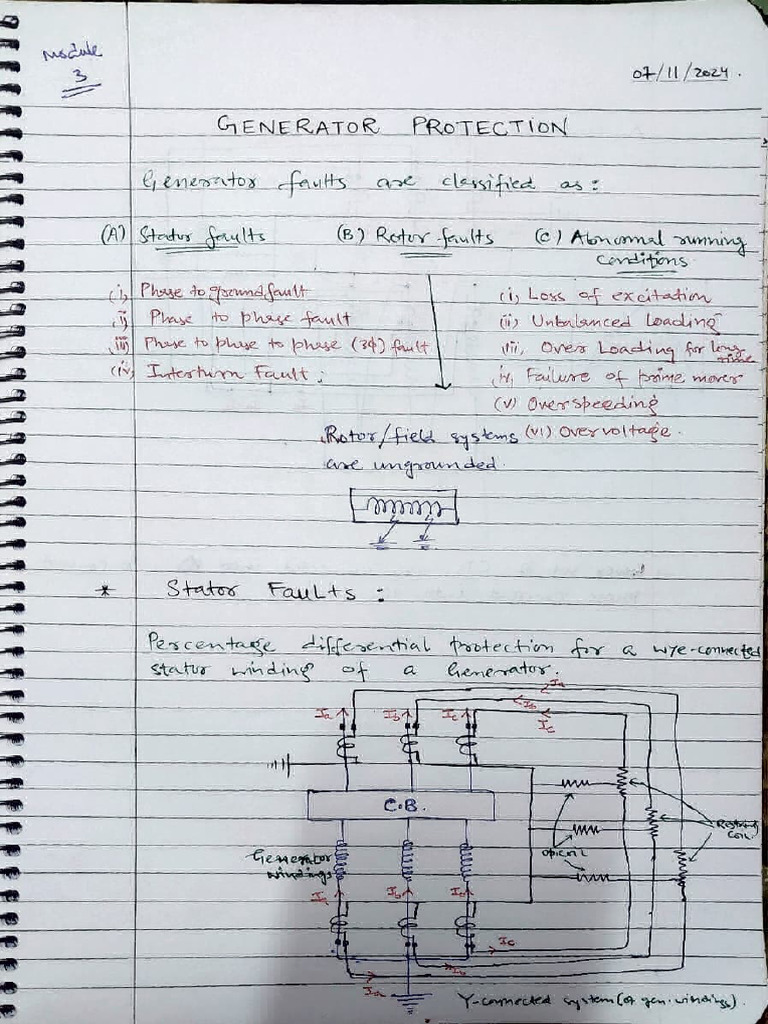 Module
3
07/11/2024.
GENERATOR PROTECTION
Generator faults are classified as:
(A) Stator faults (B) Rotor faults (C) Abnormal running
conditions
(i) Phase to ground fault
(ii) Phase to phase fault
(iii) Phase to phase to phase (3φ) fault
(iv) Interturn Fault:
(i) Loss of excitation
(ii) Unbalanced Loading
(iii) Over Loading for long
time
(iv) Failure of prime mover
(v) Overspeeding
(vi) Overvoltage.
Rotor/field systems
are ungrounded.
* Stator Faults:
Percentage differential protection for a wye-connected
stator winding of a Generator.
Ia
Ib
Ic
Ia Ib Ic
C.B.
Restraint
coil
Op. coil
Generator
windings
Ia Ib Ic
Ic
Ib
Ia
Y-connected system (of gen. windings).